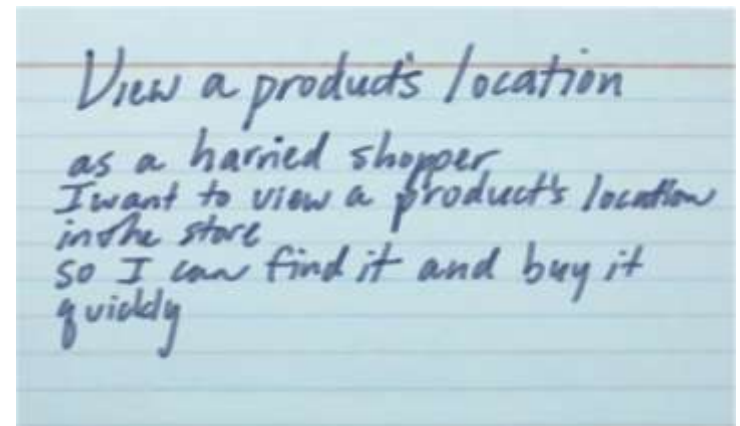 View a product's location
as a harried shopper
I want to view a product's location
in the store
so I can find it and buy it
quickly